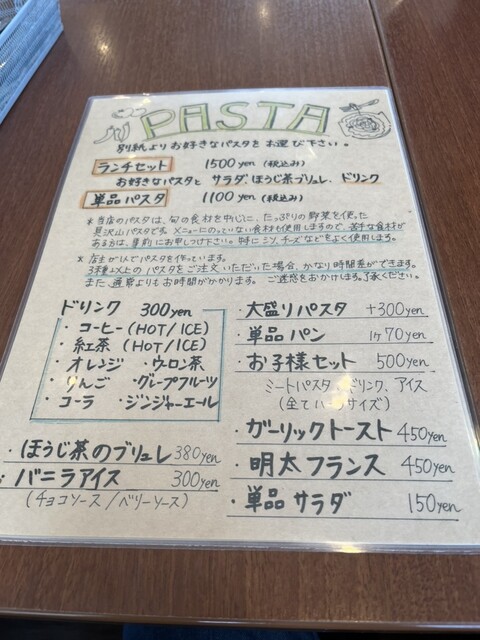 PASTA
別紙よりお好きなパスタをお選び下さい。
ランチセット 1500yen (税込み)
お好きなパスタと サラダ、ほうじ茶ブリュレ、ドリンク
単品パスタ 1100yen (税込み)
*当店のパスタは、旬の食材を中心に、たっぷりの野菜を使った
具沢山パスタです。メニューにのっていない食材も使用しますので、苦手な食材が
ある方は、事前にお申しつけ下さい。特にニンニク、チーズなどをよく使用します。
*店主が1人でパスタを作っています。
3種以上のパスタをご注文いただいた場合、かなり時間差ができます。
また、通常よりもお時間がかかります。ご迷惑をおかけします。了承ください。
ドリンク 300yen
・コーヒー(HOT/ICE)
・紅茶 (HOT/ICE)
・オレンジ ・ウーロン茶
・りんご ・グレープフルーツ
・コーラ ・ジンジャーエール
・ほうじ茶のブリュレ 380yen
・バニラアイス 300yen
(チョコソース/ベリーソース)
・大盛りパスタ +300yen
・単品パン 1ヶ70yen
・お子様セット 500yen
ミートパスタ、ドリンク、アイス
(全て サイズ)
・ガーリックトースト 450yen
・明太フランス 450yen
・単品サラダ 150yen